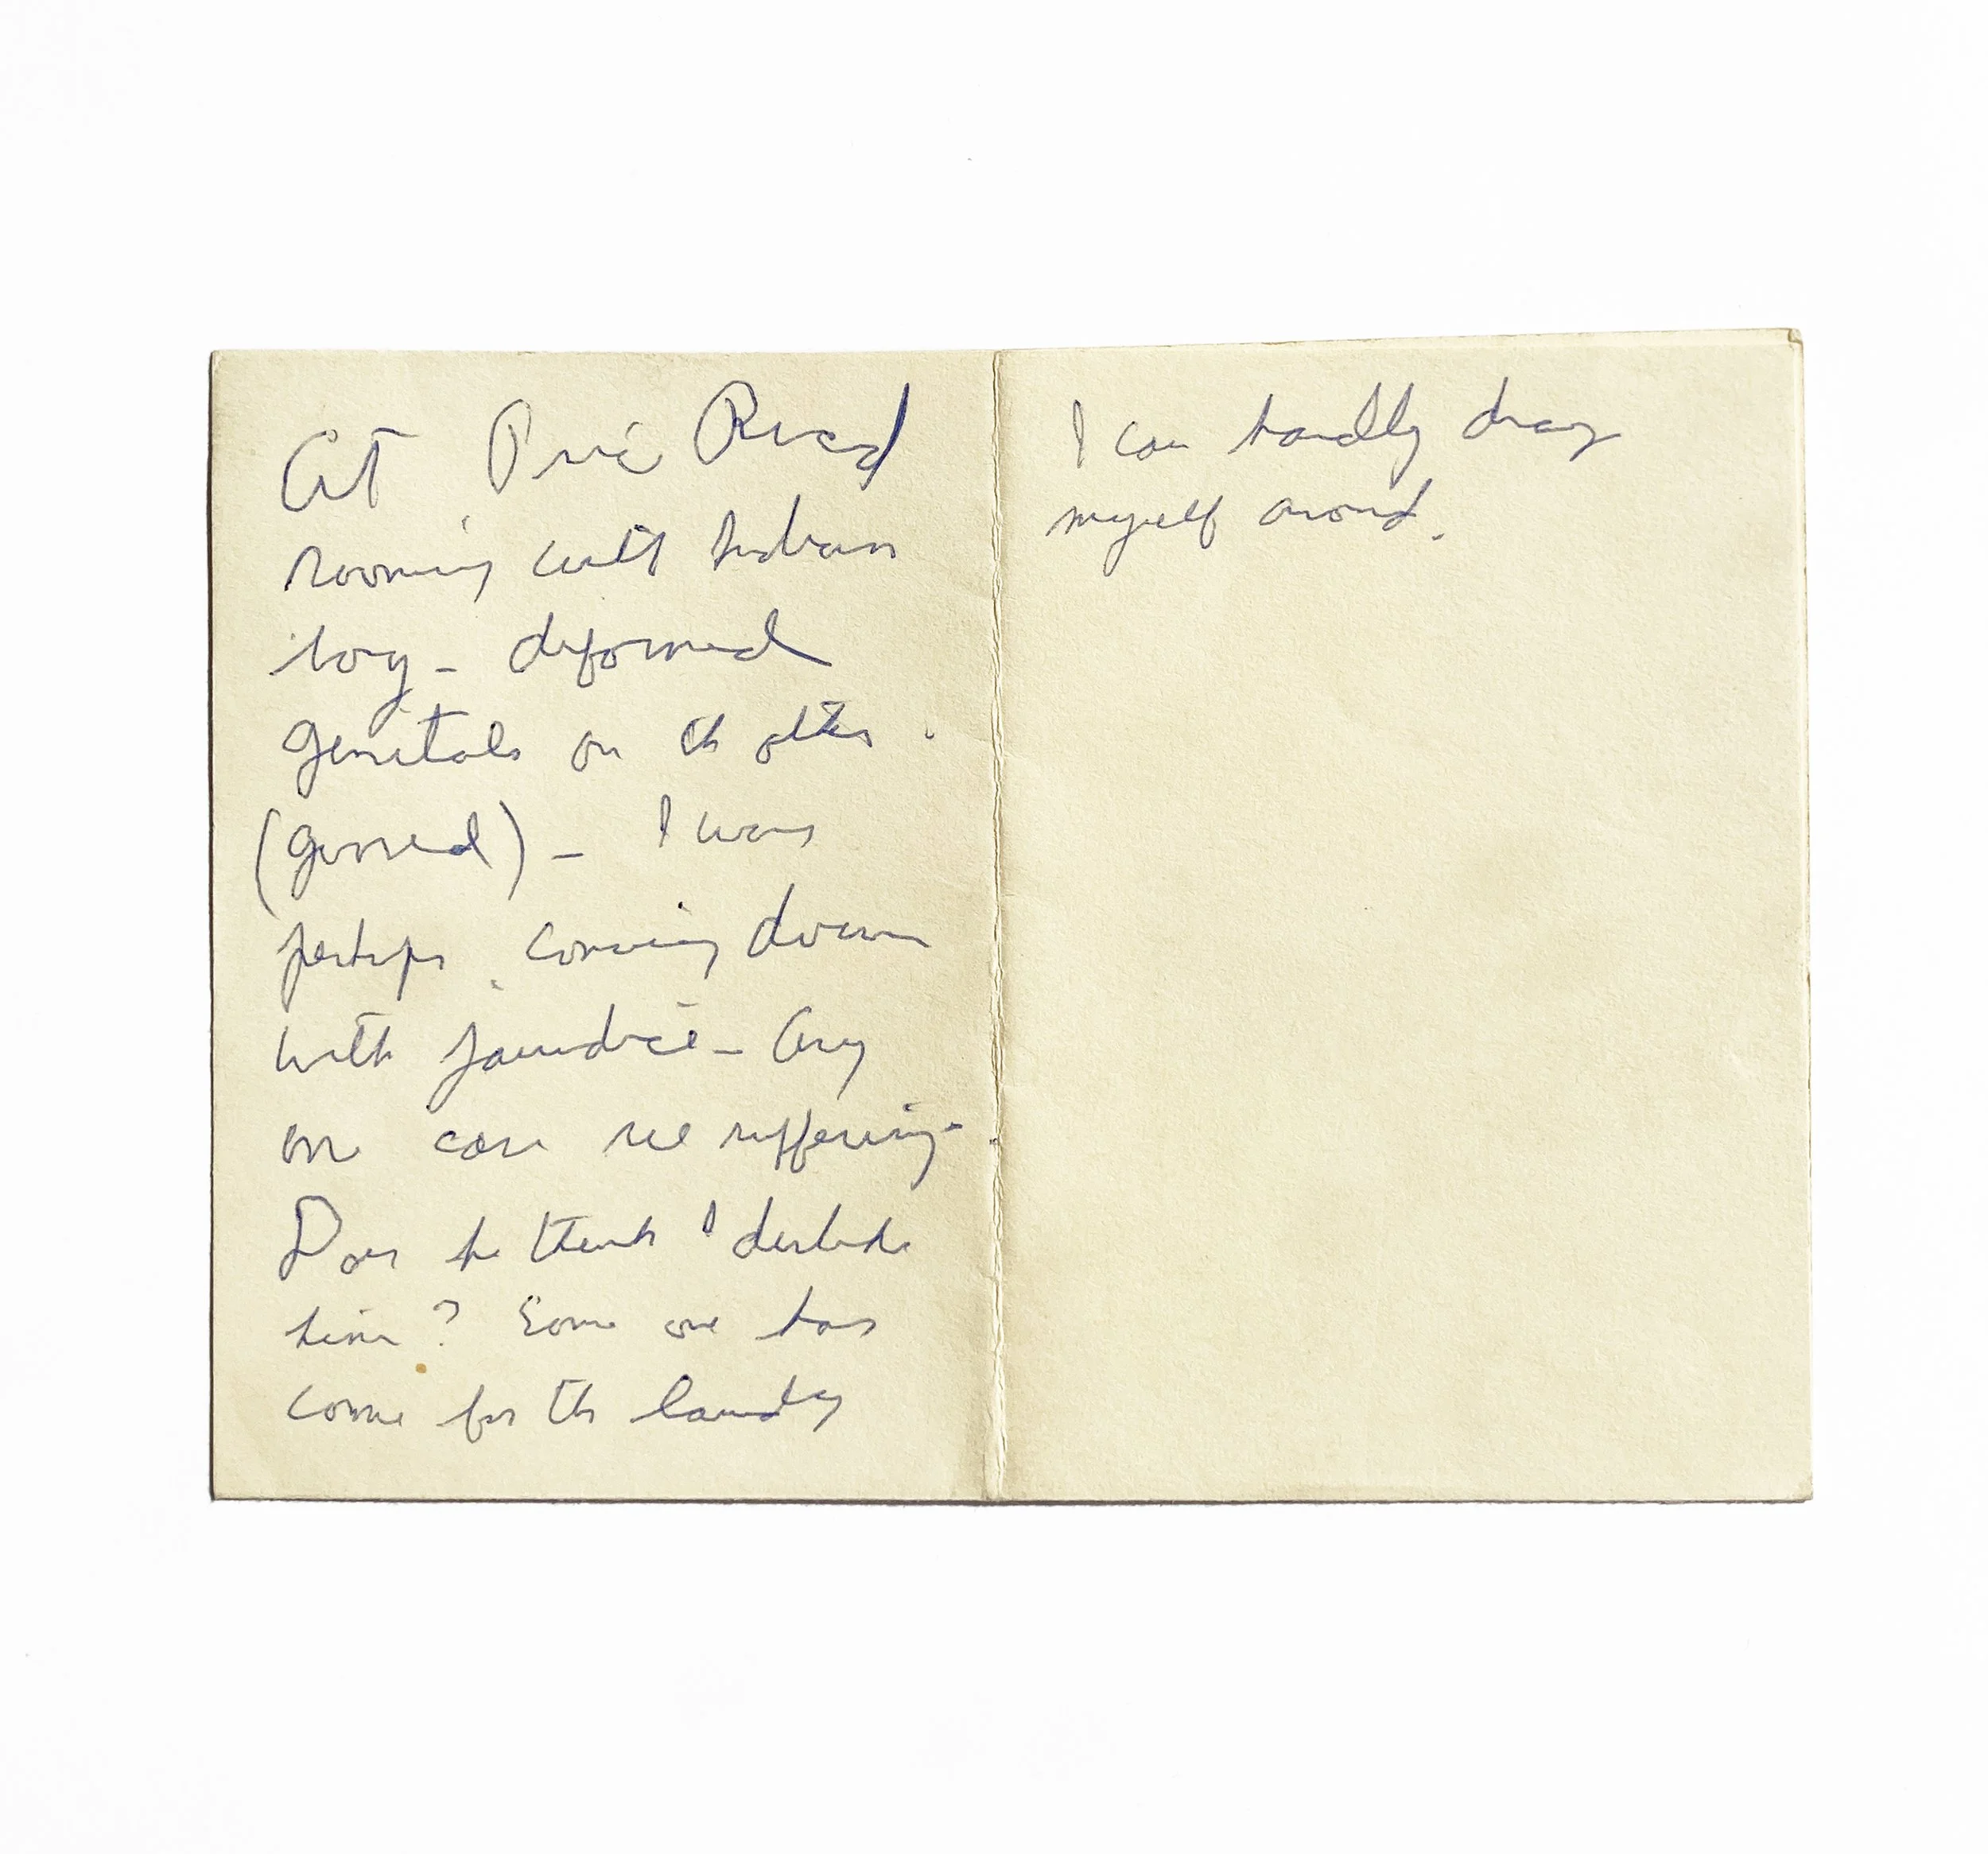 At Pine Road
rooming with Indian
boy - deformed
genitals on th other.
(gunned) - I was
perhaps coming down
with jaundice - Any
one can see suffering -
Does he think I dislike
him? Some one has
come for th laundry
I can hardly drag
myself around.